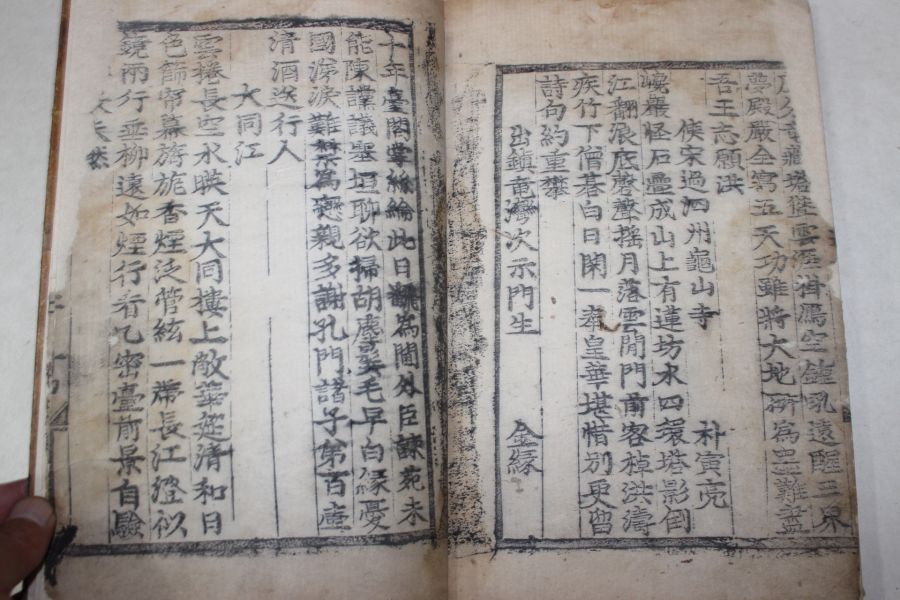 塔堡雲湮神鴈空鐘吼遠醒三界
夢殿嚴全寫五天功雖將大地所爲墨難盡
吾王志願洪
使宋過泗州龜山寺 朴寅亮
巉巖怪石疊成山上有蓮坊水四環塔影倒
江翻浪底磬聲搖月落雲間門前客棹洪濤
疾竹下僧碁白日閑一奉皇華堪惜別更留
詩句約重攀
出鎮竜灣次示門生 金緣
十年臺閣掌絲綸此日翻爲閫外臣諫苑未
能陳讜議塞垣聊欲掃胡塵髮毛早白緣憂
國涕淚難禁爲戀親多謝孔門諸子弟百壺
清酒送行人
大同江
雲捲長空水暎天大同樓上敞華筵清和日
色篩帘幕旖旎香煙泛管絃一帶長江澄似
鏡兩行垂柳遠如煙行看乙密臺前景自驗